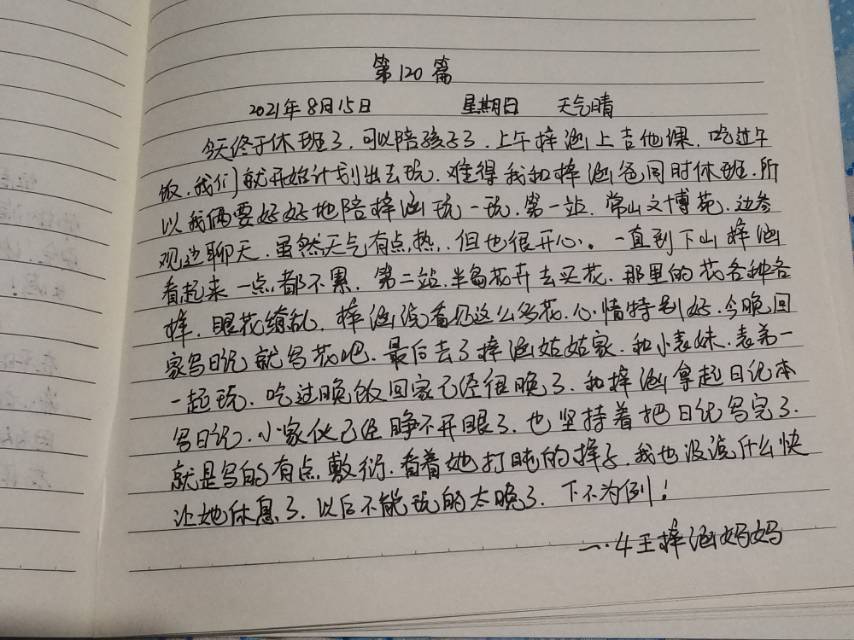 第120篇
2021年8月15日 星期日 天气晴
今天终于休班了，可以陪孩子了，上午梓涵上吉他课，吃过午
饭，我们就开始计划出去玩，难得我和梓涵爸同时休班，所
以我俩要好好地陪梓涵玩一玩，第一站，常山文博苑，边参
观边聊天，虽然天气有点热，但也很开心。一直到下山梓涵
看起来一点都不累，第二站，半岛花卉去买花，那里的花各种各
样，眼花缭乱，梓涵说看仍这么多花，心情特别好，今晚回
家写日记就写花吧，最后去了梓涵姑姑家，和小表妹，表弟一
一起玩，吃过晚饭回家已经很晚了，和梓涵拿起日记本
写日记，小家伙已经睁不开眼了，也坚持着把日记写完了，
就是写的有点敷衍，看着她打盹的样子，我也没说什么快
让她休息了，以后不能玩的太晚了，下不为例！
一.4王梓涵妈妈